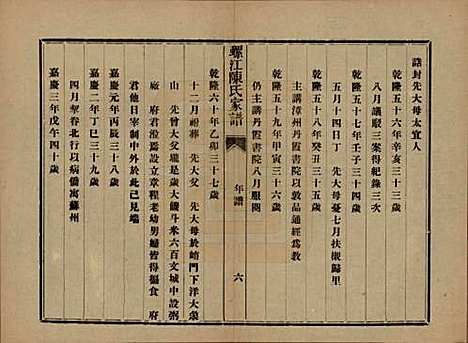 誥封先大母太宜人
乾隆五十六年辛亥三十三歲
八月議敘三案得紀錄三次
乾隆五十七年壬子三十四歲
五月十四日丁　先大母憂七月扶櫬歸里
乾隆五十八年癸丑三十五歲
主講漳州丹霞書院以敦品通經爲教
乾隆五十九年甲寅三十六歲
仍主講丹霞書院八月服闋
螺江陳氏家譜
年譜
六
乾隆六十年乙卯三十七歲
十二月祔葬　先大父　先大母於峭門下洋大象
山　先曾大父壠是歲大饑斗米六百文城中設粥
廠　府君涖爲設立章程老幼男婦皆得徧食　府
君他日宰制中外於此已見端
嘉慶元年丙辰三十八歲
嘉慶二年丁巳三十九歲
四月挈眷北行以病僑寓蘇州
嘉慶三年戊午四十歲